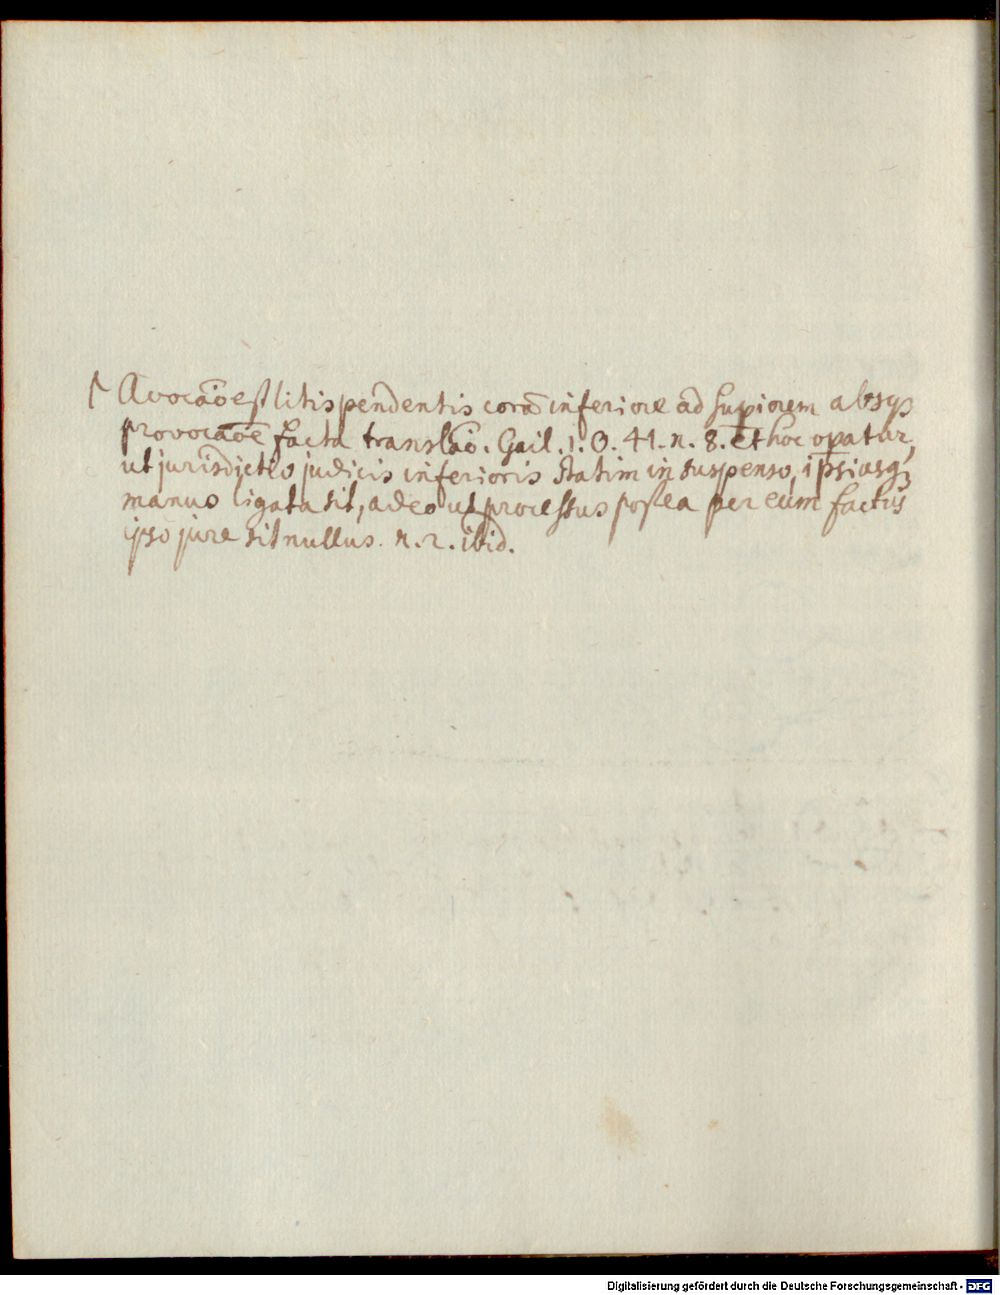 Avocãõ est litis pendentis corã inferiore ad supiorem absqȝ
provocãõe facta translãõ. Gail. 1. O. 41. n. 8. et hoc opatur,
ut jurisdictio judicis inferioris statim in suspenso, ipsiusqȝ
manus ligata sit, adeo ut processus postea per eum factus
ipso jure sit nullus. n. 2. ibid.
Digitalisierung gefördert durch die Deutsche Forschungsgemeinschaft - DFG